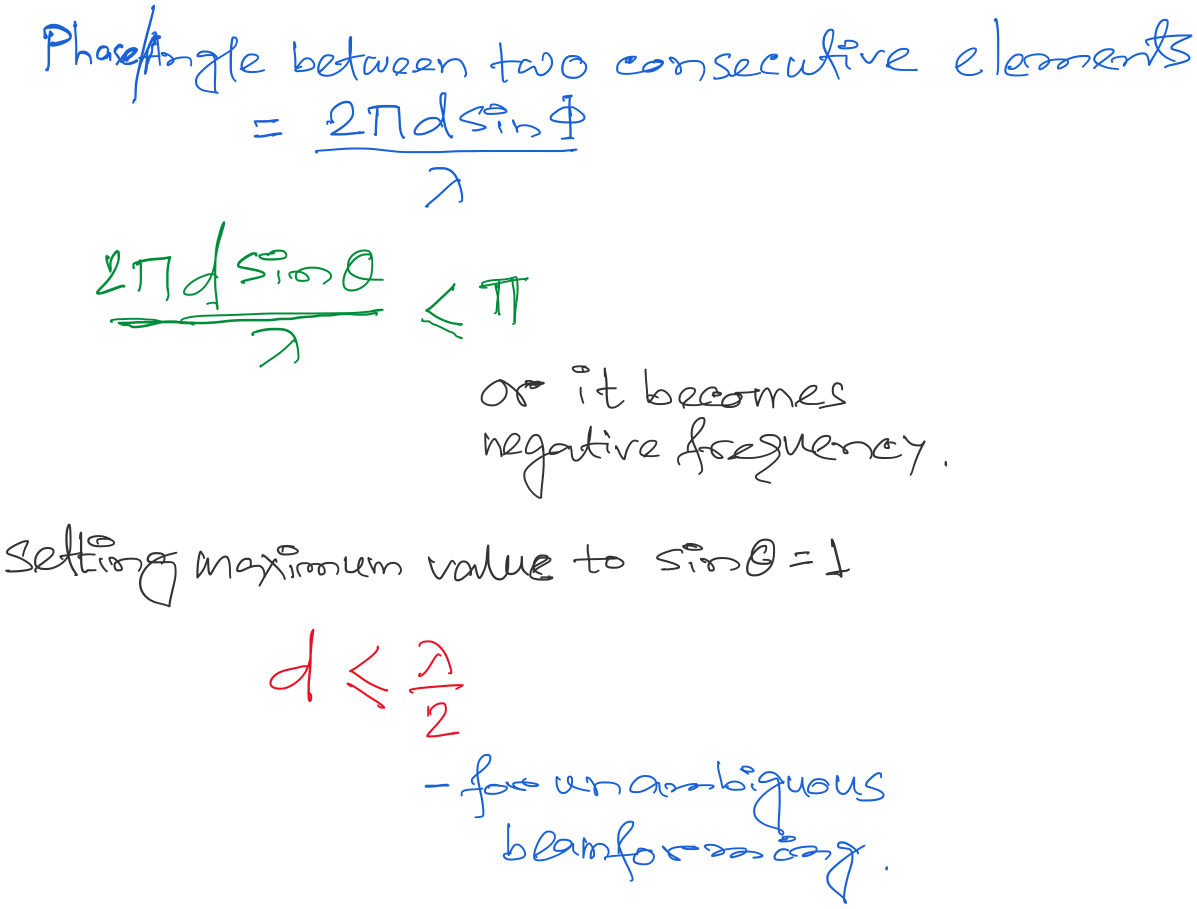 Phase/Angle between two consecutive elements
= 2πd sin Φ
λ
2πd sin θ
λ
≤ π
or it becomes
negative frequency.
setting maximum value to sin θ = 1
d ≤ λ
2
- for unambiguous
beamforming.